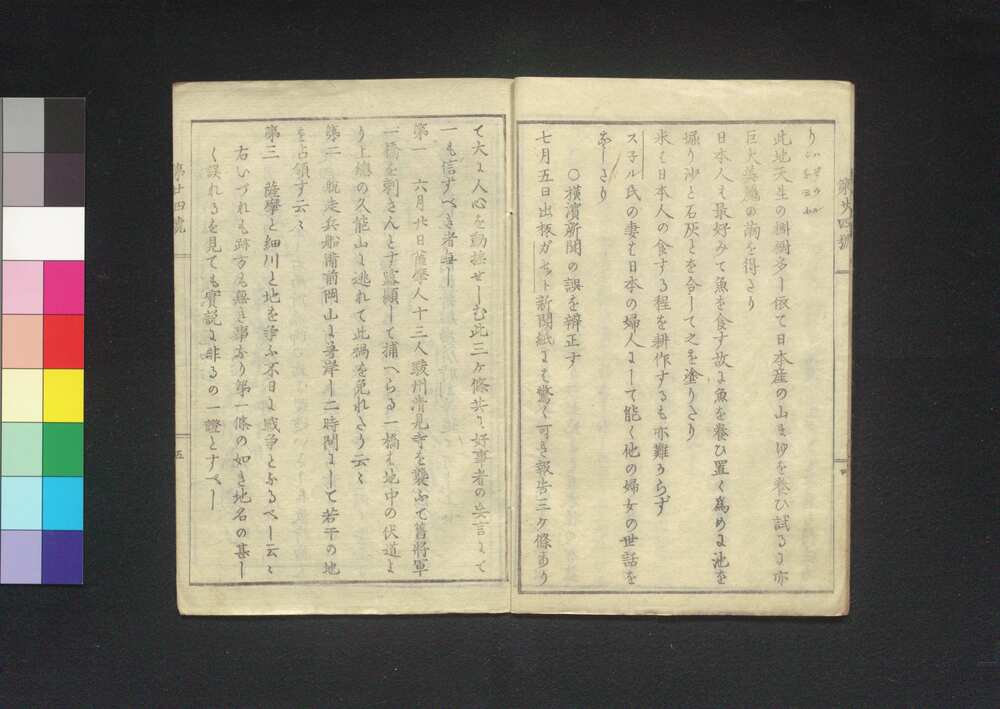 此地天生の槲樹多し依て日本産の山まゆを養ひ試るに亦
巨大美麗の繭を得たり
日本人も最好みて魚を食す故に魚を養ひ置く為めに池を
堀り沙と石灰とを合して之を塗りたり
米も日本人の食する程を耕作するも亦難からず
スネル氏の妻も日本の婦人にして能く他の婦女の世話を
なしたり
○横濱新聞の誤を辨正す
七月五日出板ガゼット新聞紙にも驚く可き報告三ケ條あり
第廿四號
四
て大に人心を動揺せしむ此三ケ條共に好事者の妄言にて
一も信ずべき者無し
第一 六月廿日薩摩人十三人駿州清見寺を襲ふて舊將軍
一橋を刺さんとす露顯して捕へらる一橋も地中の伏道よ
り上總の久能山に逃れて此禍を免れたり云々
第二 脱走兵船備前岡山に着岸し二時間にして若干の地
を占領す云々
第三 薩摩と細川と地を爭ふ不日に戰争となるべし云々
右いづれも跡方も無き事なり第一條の如き地名の甚し
く誤れるを見ても實説に非るの一證とすべし
第廿四號
五